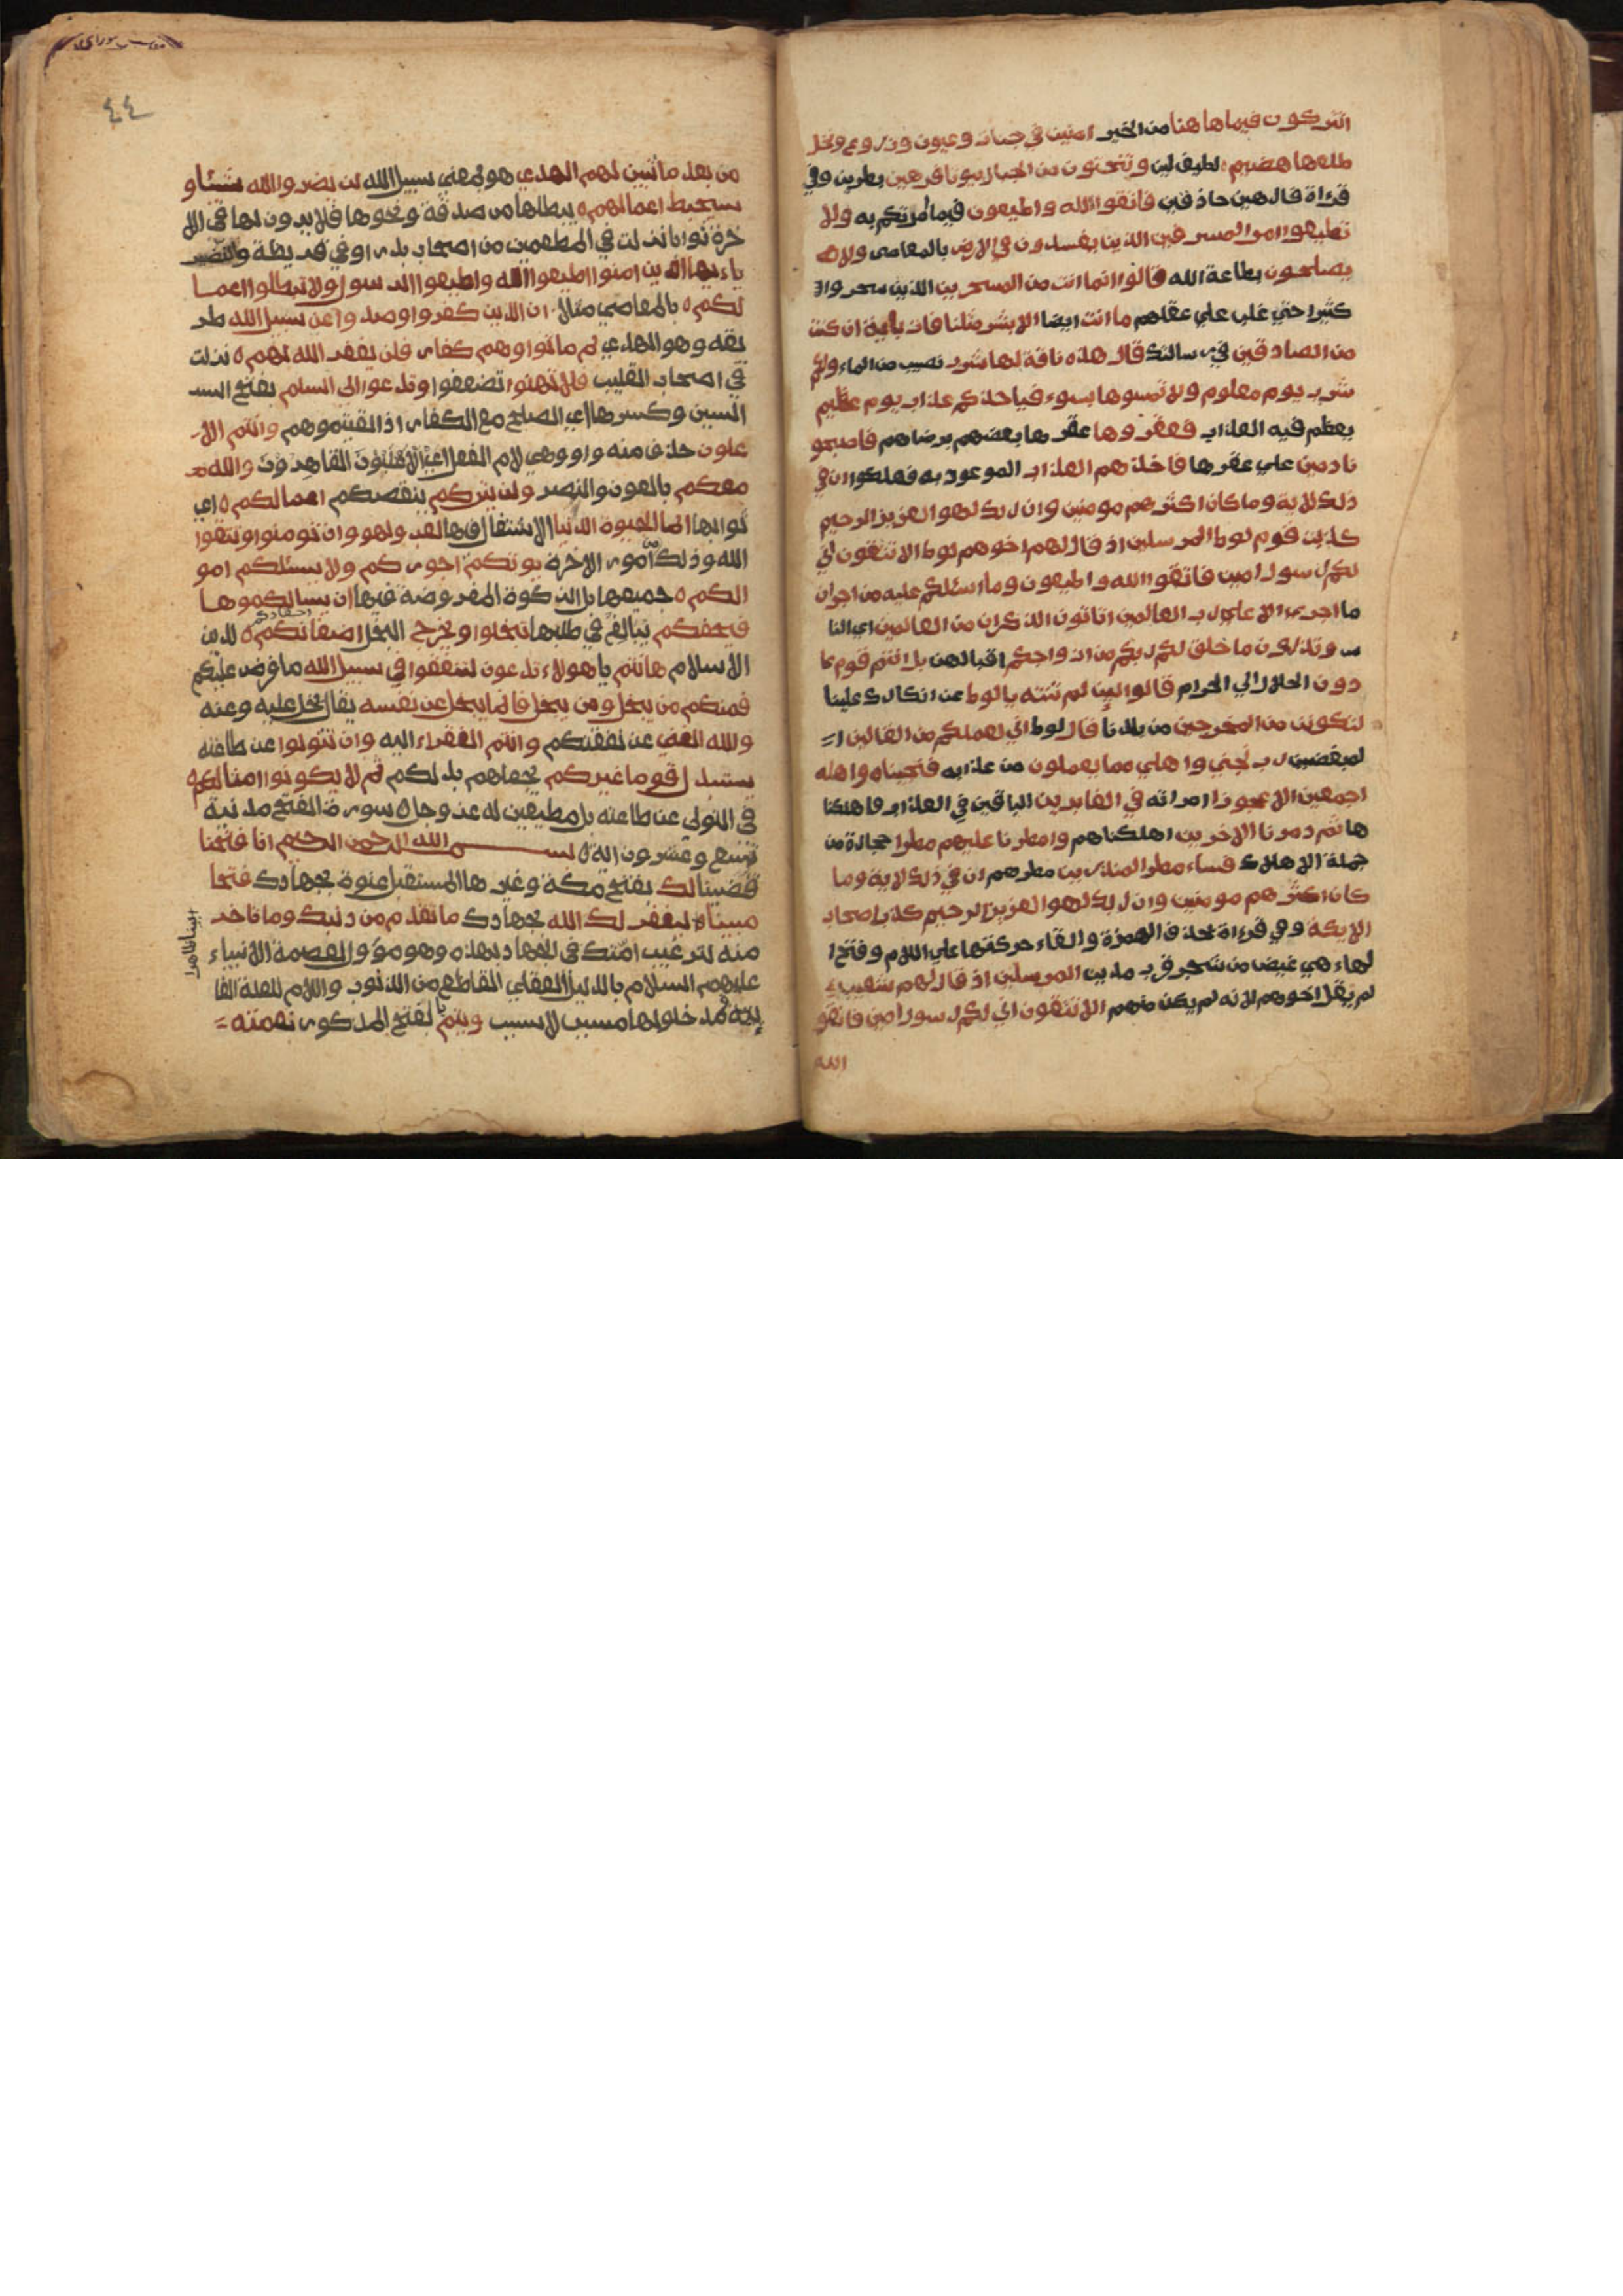 اتتركون فيما هاهنا من الخير امنين في جنات وعيون وزروع ونخل
طلعها هضيم لطيف لين وتنحتون من الجبال بيوتا فرهين بطرين وفي
قراة فارهين حاذقين فاتقوا الله واطيعون فيما امرتكم به ولا
تطيعوا امر المسرفين الذين يفسدون في الارض بالمعاصى ولا
يصلحون بطاعة الله قالوا انما انت من المسحرين الذين سحروا
كثيرا حتي غلب علي عقلهم ما انت ايضا الا بشر مثلنا فات بأية ان كنت
من الصادقين في رسالتك قال هذه ناقة لها شرب نصيب من الماء ولكم
شرب يوم معلوم ولا تمسوها بسوء فياخذكم عذاب يوم عظيم
بعظم فيه العذاب فعقروها عقرها بعضهم برضاهم فاصبحو
نادمين علي عقرها فاخذهم العذاب الموعود به فهلكوا ان في
ذلك لاية وما كان اكثرهم مومنين وان ربك لهو العزيز الرحيم
كذبت قوم لوط المرسلين اذ قال لهم اخوهم لوط الا تتقون اني
لكم رسول امين فاتقوا الله واطيعون وما اسئلكم عليه من اجر ان
ما اجري الا علي رب العالمين اتاتون الذكران من العالمين اي النا
س وتذرون ما خلق لكم ربكم من ازواجكم اقبالهن بل انتم قوم عا
دون الحلال الي الحرام قالوا لين لم تنته يالوط عن انكارك علينا
لتكونن من المخرجين من بلدنا قال لوط اني لعملكم من القالين
المبغضين رب نجني واهلي مما يعملون من عذابه فنجيناه واهله
اجمعين الا عجوزا امراته في الغابرين الباقين في العذاب فاهلكنا
ها ثم دمرنا الاخرين اهلكناهم وامطرنا عليهم مطرا حجارة من
جملة الاهلاك فساء مطر المنذرين مطرهم ان في ذلك لاية وما
كان اكثرهم مومنين وان ربك لهو العزيز الرحيم كذب اصحاب
الايكة وفي قراءة بحذف الهمزة والقاء حركتها علي اللام وفتح ا
لهاء هي غيض من شجر قرب مدين المرسلين اذ قال لهم شعيب
لم يقل اخوهم لانه لم يكن منهم الا تتقون اني لكم رسول امين فاتقو
الله
٤٤
من بعد ما تبين لهم الهدي هو معني سبيل الله لن يضروا الله شيئا و
سيحبط اعمالهم يبطلها من صدقة ونحوها فلا يرون لها في الا
خرة ثوابا نزلت في المطعمين من اصحاب بدر او في قريظة والنضير
ياءيها الذين امنوا اطيعوا الله واطيعوا الرسول ولا تبطلوا اعما
لكم بالمعاصي مثلا ان الذين كفروا وصدوا عن سبيل الله طر
يقه وهو الهدي ثم ماتوا وهم كفار فلن يغفر الله لهم نزلت
في اصحاب القليب فلا تهنوا تضعفوا وتدعوا الى السلم بفتح الس
السين وكسرها اي الصلح مع الكفار اذا لقيتموهم وانتم الا
علون حذف منه واو وهي لام الفعل اي الاغلبون القاهرون والله مع
معكم بالعون والنصر ولن يتركم ينقصكم اعمالكم اي
ثوابها انما الحيوة الدنيا الاشتغال فيها لعب ولهو وان تومنوا وتتقوا
الله وذلك من امور الاخرة يوتكم اجوركم ولا يسئلكم امو
الكم جميعها بل الزكوة المفروضة فيها ان يسالكموها
فيحفكم يبالغ في طلبها تبخلوا ويخرج البخل اضغانكم احقادكم لدين
الاسلام هانتم ياهولاء تدعون لتنفقوا في سبيل الله ما فرض عليكم
فمنكم من يبخل ومن يبخل فانما يبخل عن نفسه يقال بخل عليه وعنه
والله الغني عن نفقتكم وانتم الفقراء اليه وان تتولوا عن طاعته
يستبدل قوما غيركم يجعلهم بدلكم ثم لا يكونوا امثالكم
في التولي عن طاعته بل مطيعين له عز وجل سورة الفتح مدنية
تسع وعشرون اية بسم الله الرحمن الرحيم انا فتحنا
قضينا لك بفتح مكة وغيرها المستقبل عنوة بجهادك فتحا
مبينا ليغفر لك الله بجهادك ما تقدم من ذنبك وما تاخر
بينا ظاهرا
منه لترغيب امتك في الجهاد بهذه وهو مؤول لعصمة الانبياء
عليهم السلام بالدليل العقلي القاطع من الذنوب واللام للعلة الغا
ئية فمدخولها مسبب لا سبب ويتم بالفتح المذكور نعمته